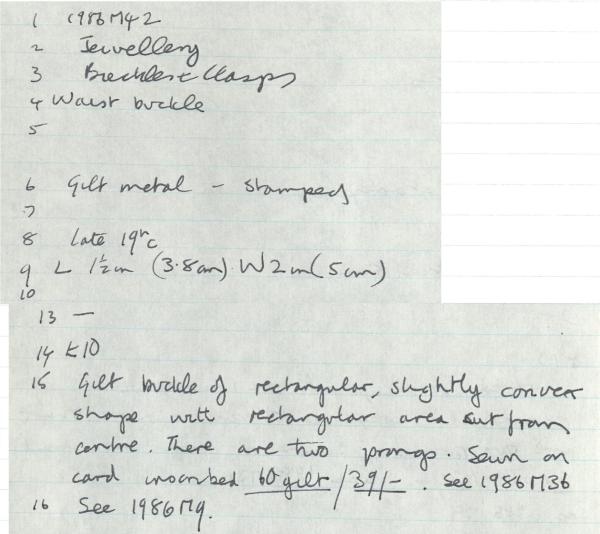 1 1986 M42
2 Jewellery
3 Buckles + Clasps
4 Waist buckle
5
6 Gilt metal - stamped
7
8 late 19th c
9 L 1½in (3.8cm) W 2in (5cm)
10
13 —
14 £10
15 Gilt buckle of rectangular, slightly convex
shape with rectangular area cut from
centre. There are two prongs. Sewn on
card inscribed 60 gilt / 39/- . See 1986 M36
16 See 1986 M9.